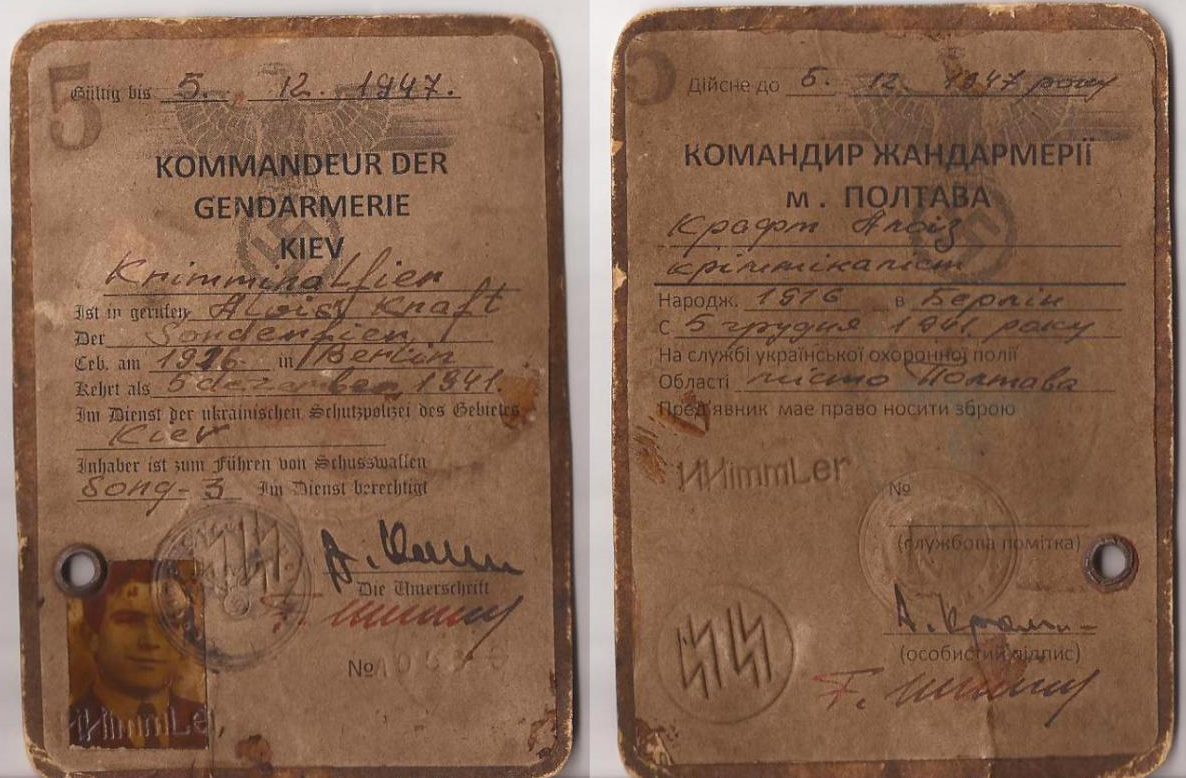 5
Gültig bis 5. 12. 1947.
KOMMANDEUR DER
GENDARMERIE
KIEV
Krimminalfien
Ist in gerufen Alois Kraft
Der Sonderfien
Ceb. am 1926 in Berlin
Kehrt als 5 dezember 1941.
Im Dienst der ukrainischen Schutzpolizei des Gebietes
Kiev
Inhaber ist zum Führen von Schusswaffen
Song-3 Im Dienst berechtigt
Die Unterschrift
№
HimmLer
5
Дійсне до 5. 12. 1947 року
КОМАНДИР ЖАНДАРМЕРІЇ
м. ПОЛТАВА
Крафт Алоіз
крімінікаліст
Народж. 1916 в Берлін
С 5 грудня 1941 року
На службі української охоронної полії
Області місто Полтава
Пред'явник має право носити зброю
HimmLer
№
(службова помітка)
(особистий підпис)